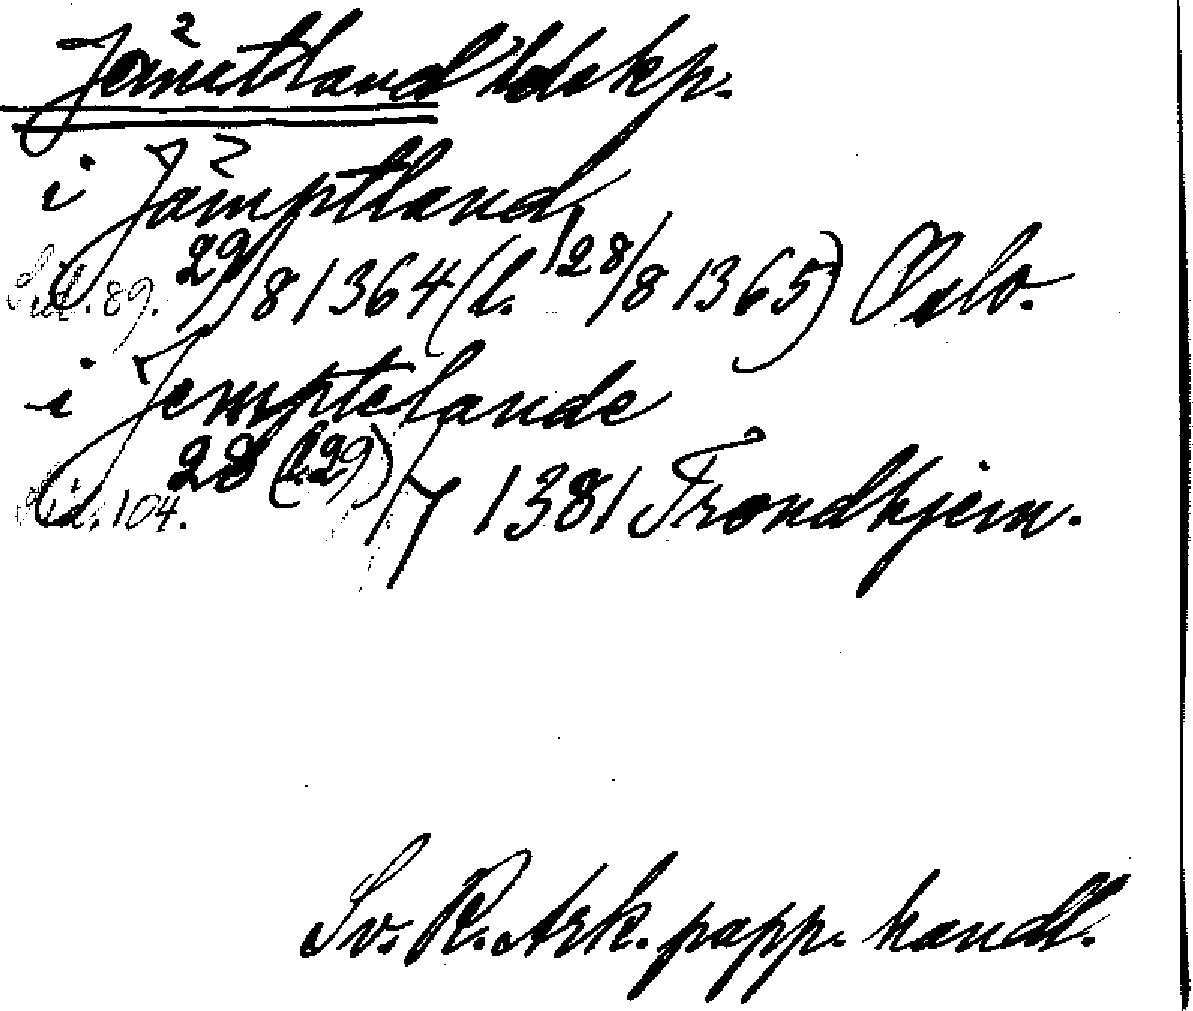 Jämtland ldskp.
i Jämptland
Sid. 89. 29/8 1364 (l. 28/8 1365) Oslo.
i Jemptelande
Sid. 104. 28 (l. 29)/7 1381 Trondhjem.
Sv. R. Ark. papp. handl.